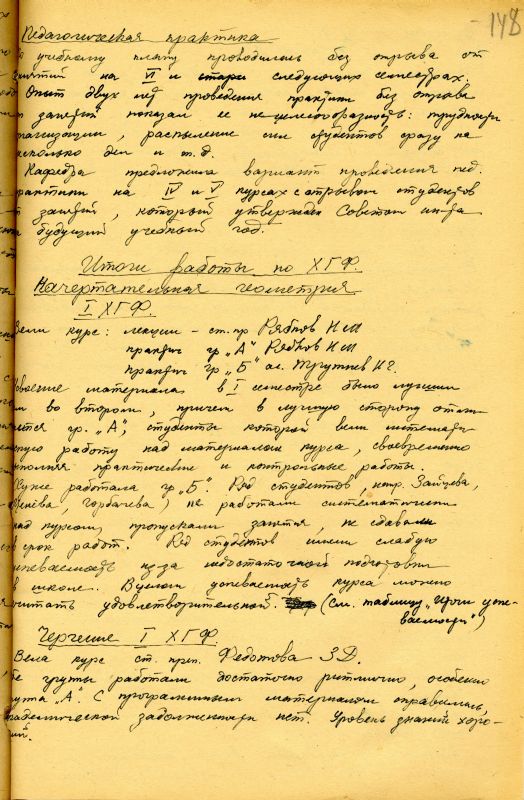 -148
Педагогическая практика
учебному плану проводилась без отрыва от
занятий на VI и следующих семестрах.
Опыт двух лет проведения практики без отрыва
занятий показал ее нецелесообразность: трудности
организации, распыление сил студентов сразу на
несколько дел и т.д.
Кафедра предложила вариант проведения пед.
практики на IV и V курсах с отрывом студентов
от занятий, который утвержден Советом ин-та
будущий учебный год.
Итоги работы по ХГФ.
Начертательная геометрия
I ХГФ.
Вели курс: лекции – ст. пр Рябков Н М
практич гр „А" Рябков Н М
практич гр „Б" ас. Трутнев
Усвоение материала в I семестре было лучшим
во втором, причем в лучшую сторону отли
чается гр. „А", студенты которой вели
работу над материалом курса, своевременно
выполняя практические и контрольные работы.
Хуже работала гр „Б". Ряд студентов, напр. Зайцева,
Горбачева) не работали систематически
над курсом, пропускали занятия, не сдавали
в срок работ. Ряд студентов имели слабую
успеваемость из-за недостаточной подготовки
в школе. В целом успеваемость курса можно
считать удовлетворительной. (См. таблицу „Итоги успе-
ваемости")
Черчение I ХГФ.
Вела курс ст. преп. Федотова З.Д.
группы работали достаточно ритмично, особенно
группа „А". С программным материалом справились,
академической задолженности нет. Уровень знаний хоро-
ший.